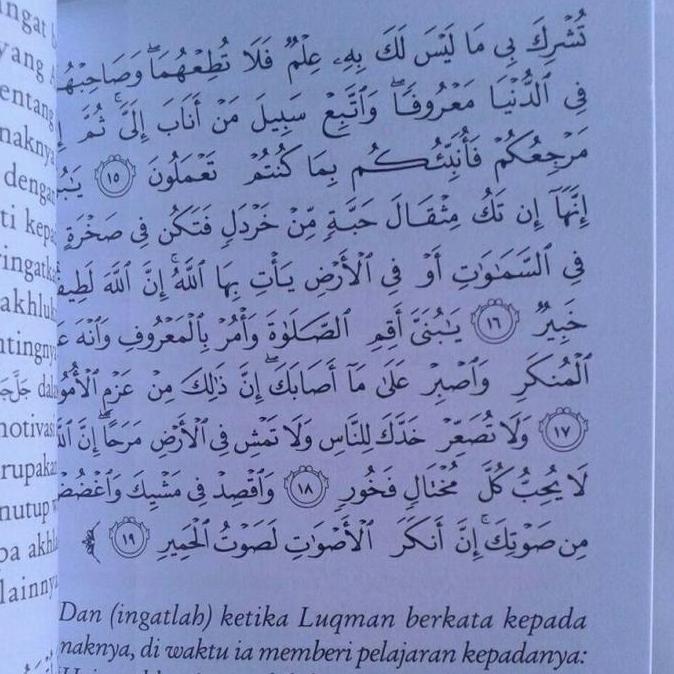 تُشْرِكَ بِى مَا لَيْسَ لَكَ بِهِۦ عِلْمٌ فَلَا تُطِعْهُمَا ۖ وَصَاحِبْهُ
فِى ٱلدُّنْيَا مَعْرُوفًا ۖ وَٱتَّبِعْ سَبِيلَ مَنْ أَنَابَ إِلَىَّ ۚ ثُمَّ
مَرْجِعُكُمْ فَأُنَبِّئُكُم بِمَا كُنتُمْ تَعْمَلُونَ ١٥ يَـٰبُ
إِنَّهَآ إِن تَكُ مِثْقَالَ حَبَّةٍ مِّنْ خَرْدَلٍ فَتَكُن فِى صَخْرَةٍ
فِى ٱلسَّمَـٰوَٰتِ أَوْ فِى ٱلْأَرْضِ يَأْتِ بِهَا ٱللَّهُ ۚ إِنَّ ٱللَّهَ لَطِيفٌ
خَبِيرٌ ١٦ يَـٰبُنَىَّ أَقِمِ ٱلصَّلَوٰةَ وَأْمُرْ بِٱلْمَعْرُوفِ وَٱنْهَ عَ
ٱلْمُنكَرِ وَٱصْبِرْ عَلَىٰ مَآ أَصَابَكَ ۖ إِنَّ ذَٰلِكَ مِنْ عَزْمِ ٱلْأُمُو
١٧ وَلَا تُصَعِّرْ خَدَّكَ لِلنَّاسِ وَلَا تَمْشِ فِى ٱلْأَرْضِ مَرَحًا ۖ إِنَّ ٱللَّ
لَا يُحِبُّ كُلَّ مُخْتَالٍ فَخُورٍ ١٨ وَٱقْصِدْ فِى مَشْيِكَ وَٱغْضُضْ
مِن صَوْتِكَ ۚ إِنَّ أَنكَرَ ٱلْأَصْوَٰتِ لَصَوْتُ ٱلْحَمِيرِ ١٩ ﴾
Dan (ingatlah) ketika Luqman berkata kepada
naknya, di waktu ia memberi pelajaran kepadanya:
ngat
yang
entang
naknya
dengan
ti kepa
ringatka
akhluk
ntingny
جَلَّجَ dala
motivas
rupakan
nutup
pa akhl
lainnya